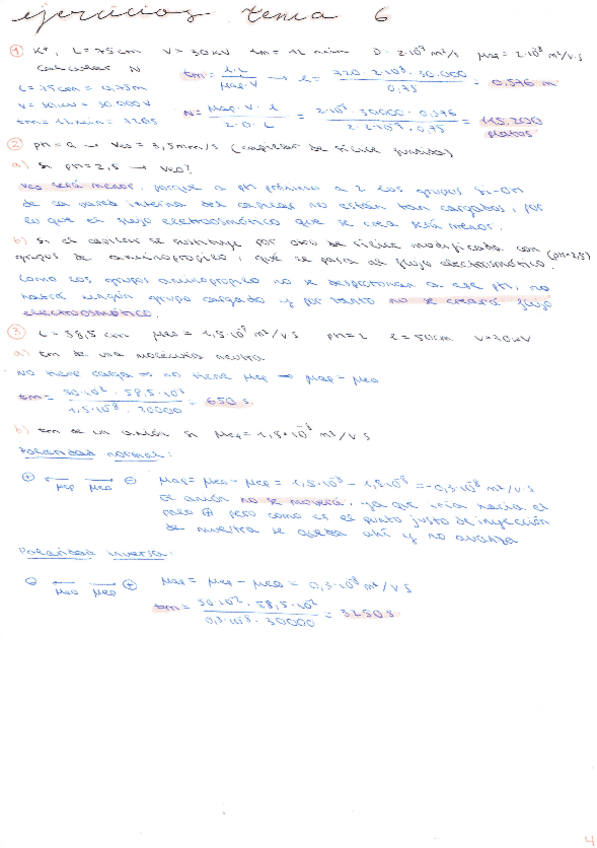 ejercicios tema 6
① K⁺, L = 75 cm V = 30 kV tm = 12 min D = 2·10⁻⁹ m²/s μap = 2·10⁻⁸ m²/V·s
Calcular N
L = 75 cm = 0,75 m
V = 30 kV = 30.000 V
tm = 12 min = 720 s
tm = l·L / μap·V → l = 720·2·10⁻⁸·30.000 / 0,75 = 0,576 m
N = μap·V·l / 2·D·L = 2·10⁻⁸·30000·0,576 / 2·2·10⁻⁹·0,75 = 115.200 platos
② pH = 2 → Veo = 3,5 mm/s (capilar de sílice fundida)
a) Si pH = 2,5 → Veo?
Veo será menor, porque a pH próximo a 2 los grupos Si-OH
de la pared interna del capilar no están tan cargados, por
lo que el flujo electroosmótico que se crea será menor.
b) Si el capilar se sustituye por otro de sílice modificada con (pH=2,5)
grupos de aminopropilo, qué le pasa al flujo electroosmótico?
Como los grupos aminopropilo no se desprotonan a ese pH, no
habrá ningún grupo cargado y por tanto no se creará flujo
electroosmótico.
③ L = 58,5 cm μeo = 1,5·10⁻⁸ m²/V·s pH = 2 l = 50 cm V = 30 kV
a) tm de una molécula neutra
No tiene carga ⇒ no tiene μep → μap = μeo
tm = 50·10⁻²·58,5·10⁻² / 1,5·10⁻⁸·30000 = 650 s
b) tm de un anión si μep = 1,8·10⁻⁸ m²/V·s
Polaridad normal:
⊕ ← μep → μeo ⊖ μap = μeo - μep = 1,5·10⁻⁸ - 1,8·10⁻⁸ = -0,3·10⁻⁸ m²/V·s
El anión no se moverá, ya que iría hacia el
polo ⊕ pero como es el punto justo de inyección
de muestra se queda ahí y no avanza
Polaridad inversa:
⊖ ← μeo → μep ⊕ μap = μep - μeo = 0,3·10⁻⁸ m²/V·s
tm = 50·10⁻²·58,5·10⁻² / 0,3·10⁻⁸·30000 = 3250 s
4